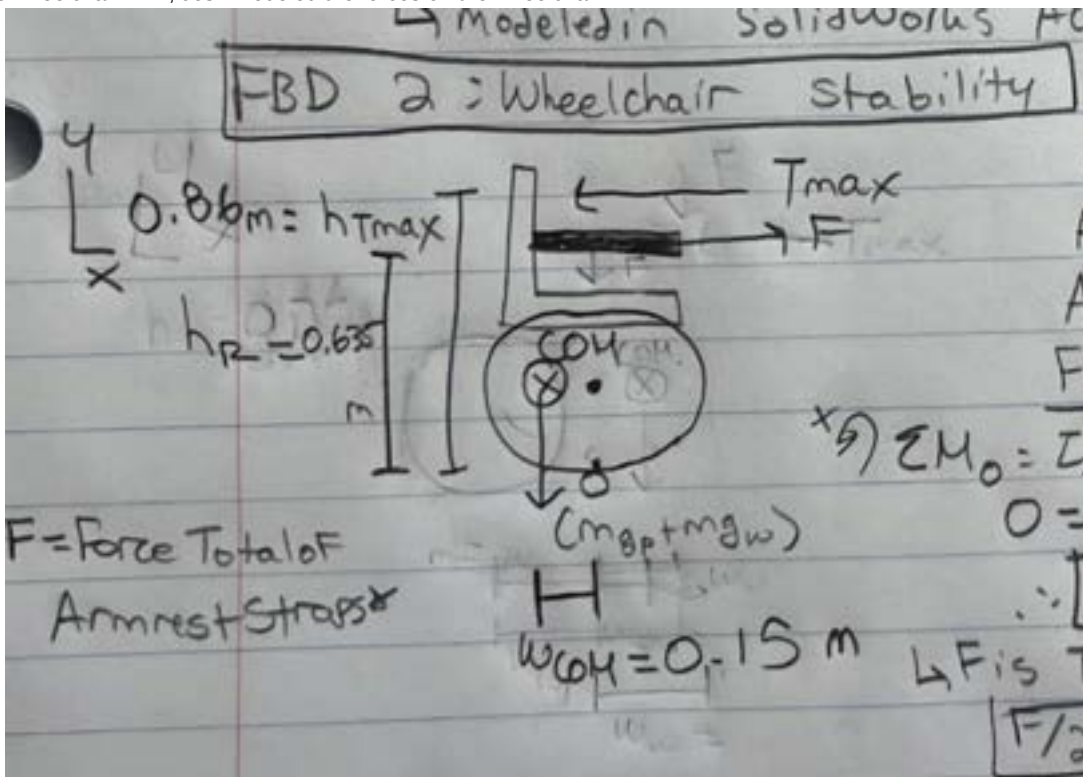 ↳ Modeled in SolidWorks
FBD 2: Wheelchair stability
y
x
0.86m = hTmax
Tmax
F
hR = 0.635
m
COM
O
(mgp + mgw)
F = Force Total of
Armrest Straps*
wCOM = 0.15 m
ΣMO =
0 =
∴
↳ F is
F/2